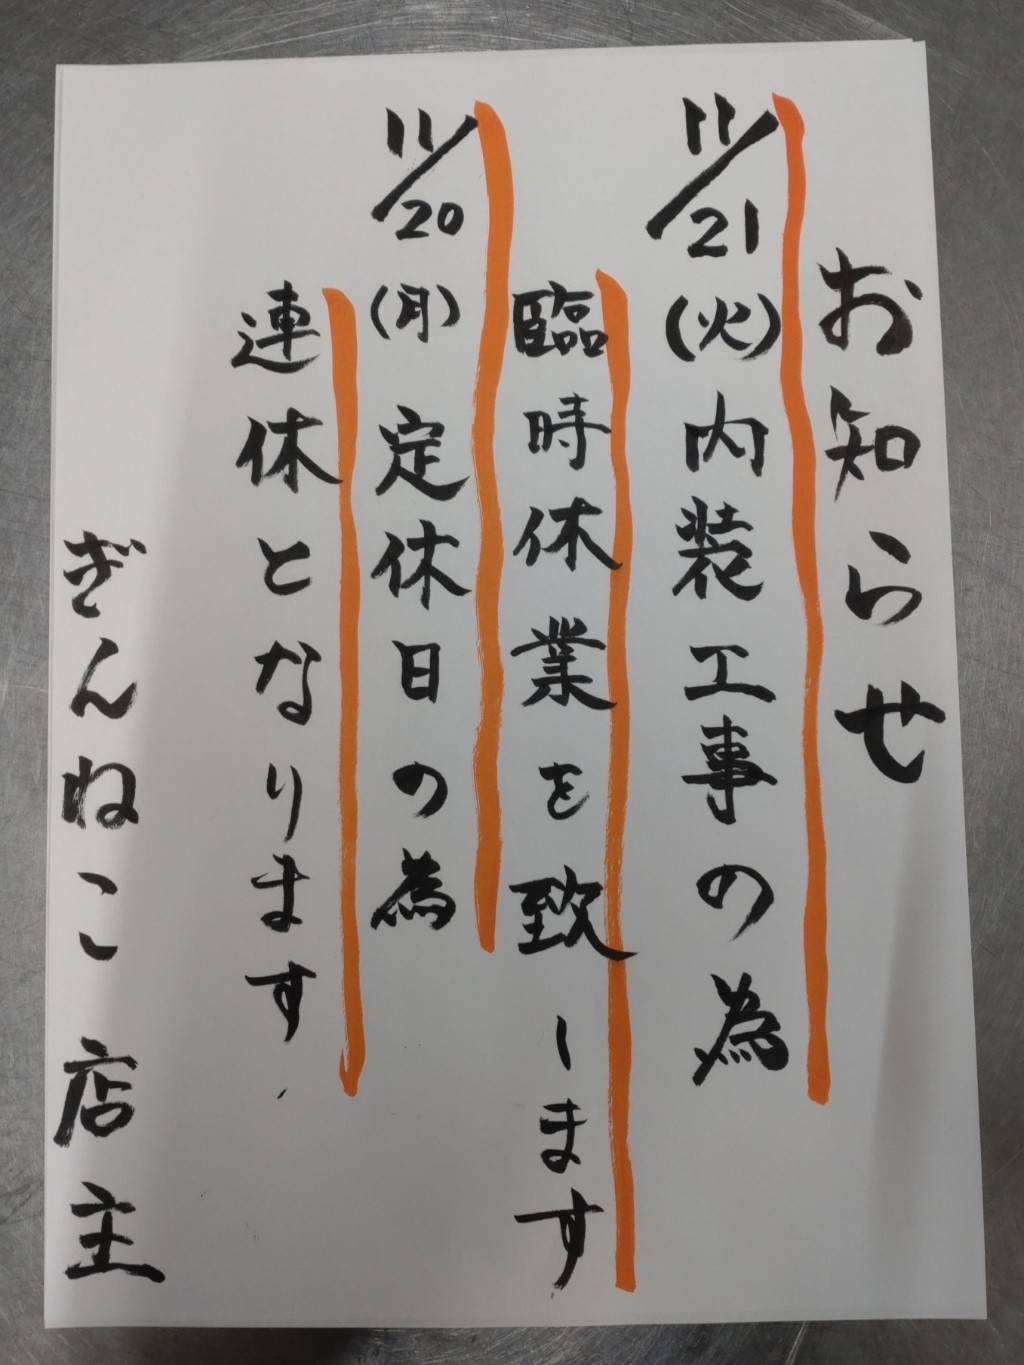 お知らせ
11/21(火)内装工事の為
臨時休業を致します
11/20(月)定休日の為
連休となります.
ぎんねこ店主